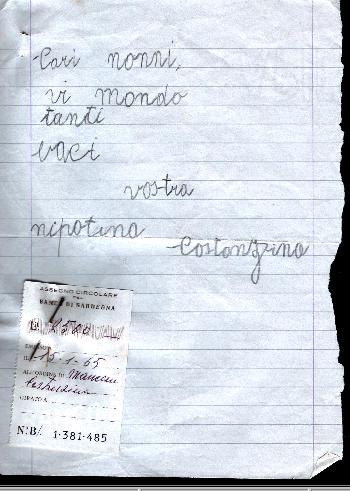 Cari nonni,
vi mondo
tanti
baci
vostra
nipotina
Costanzina
ASSEGNO CIRCOLARE
BANCO DI SARDEGNA
1-65
ALL'ORDINE DI
N.B/. 1·381·485